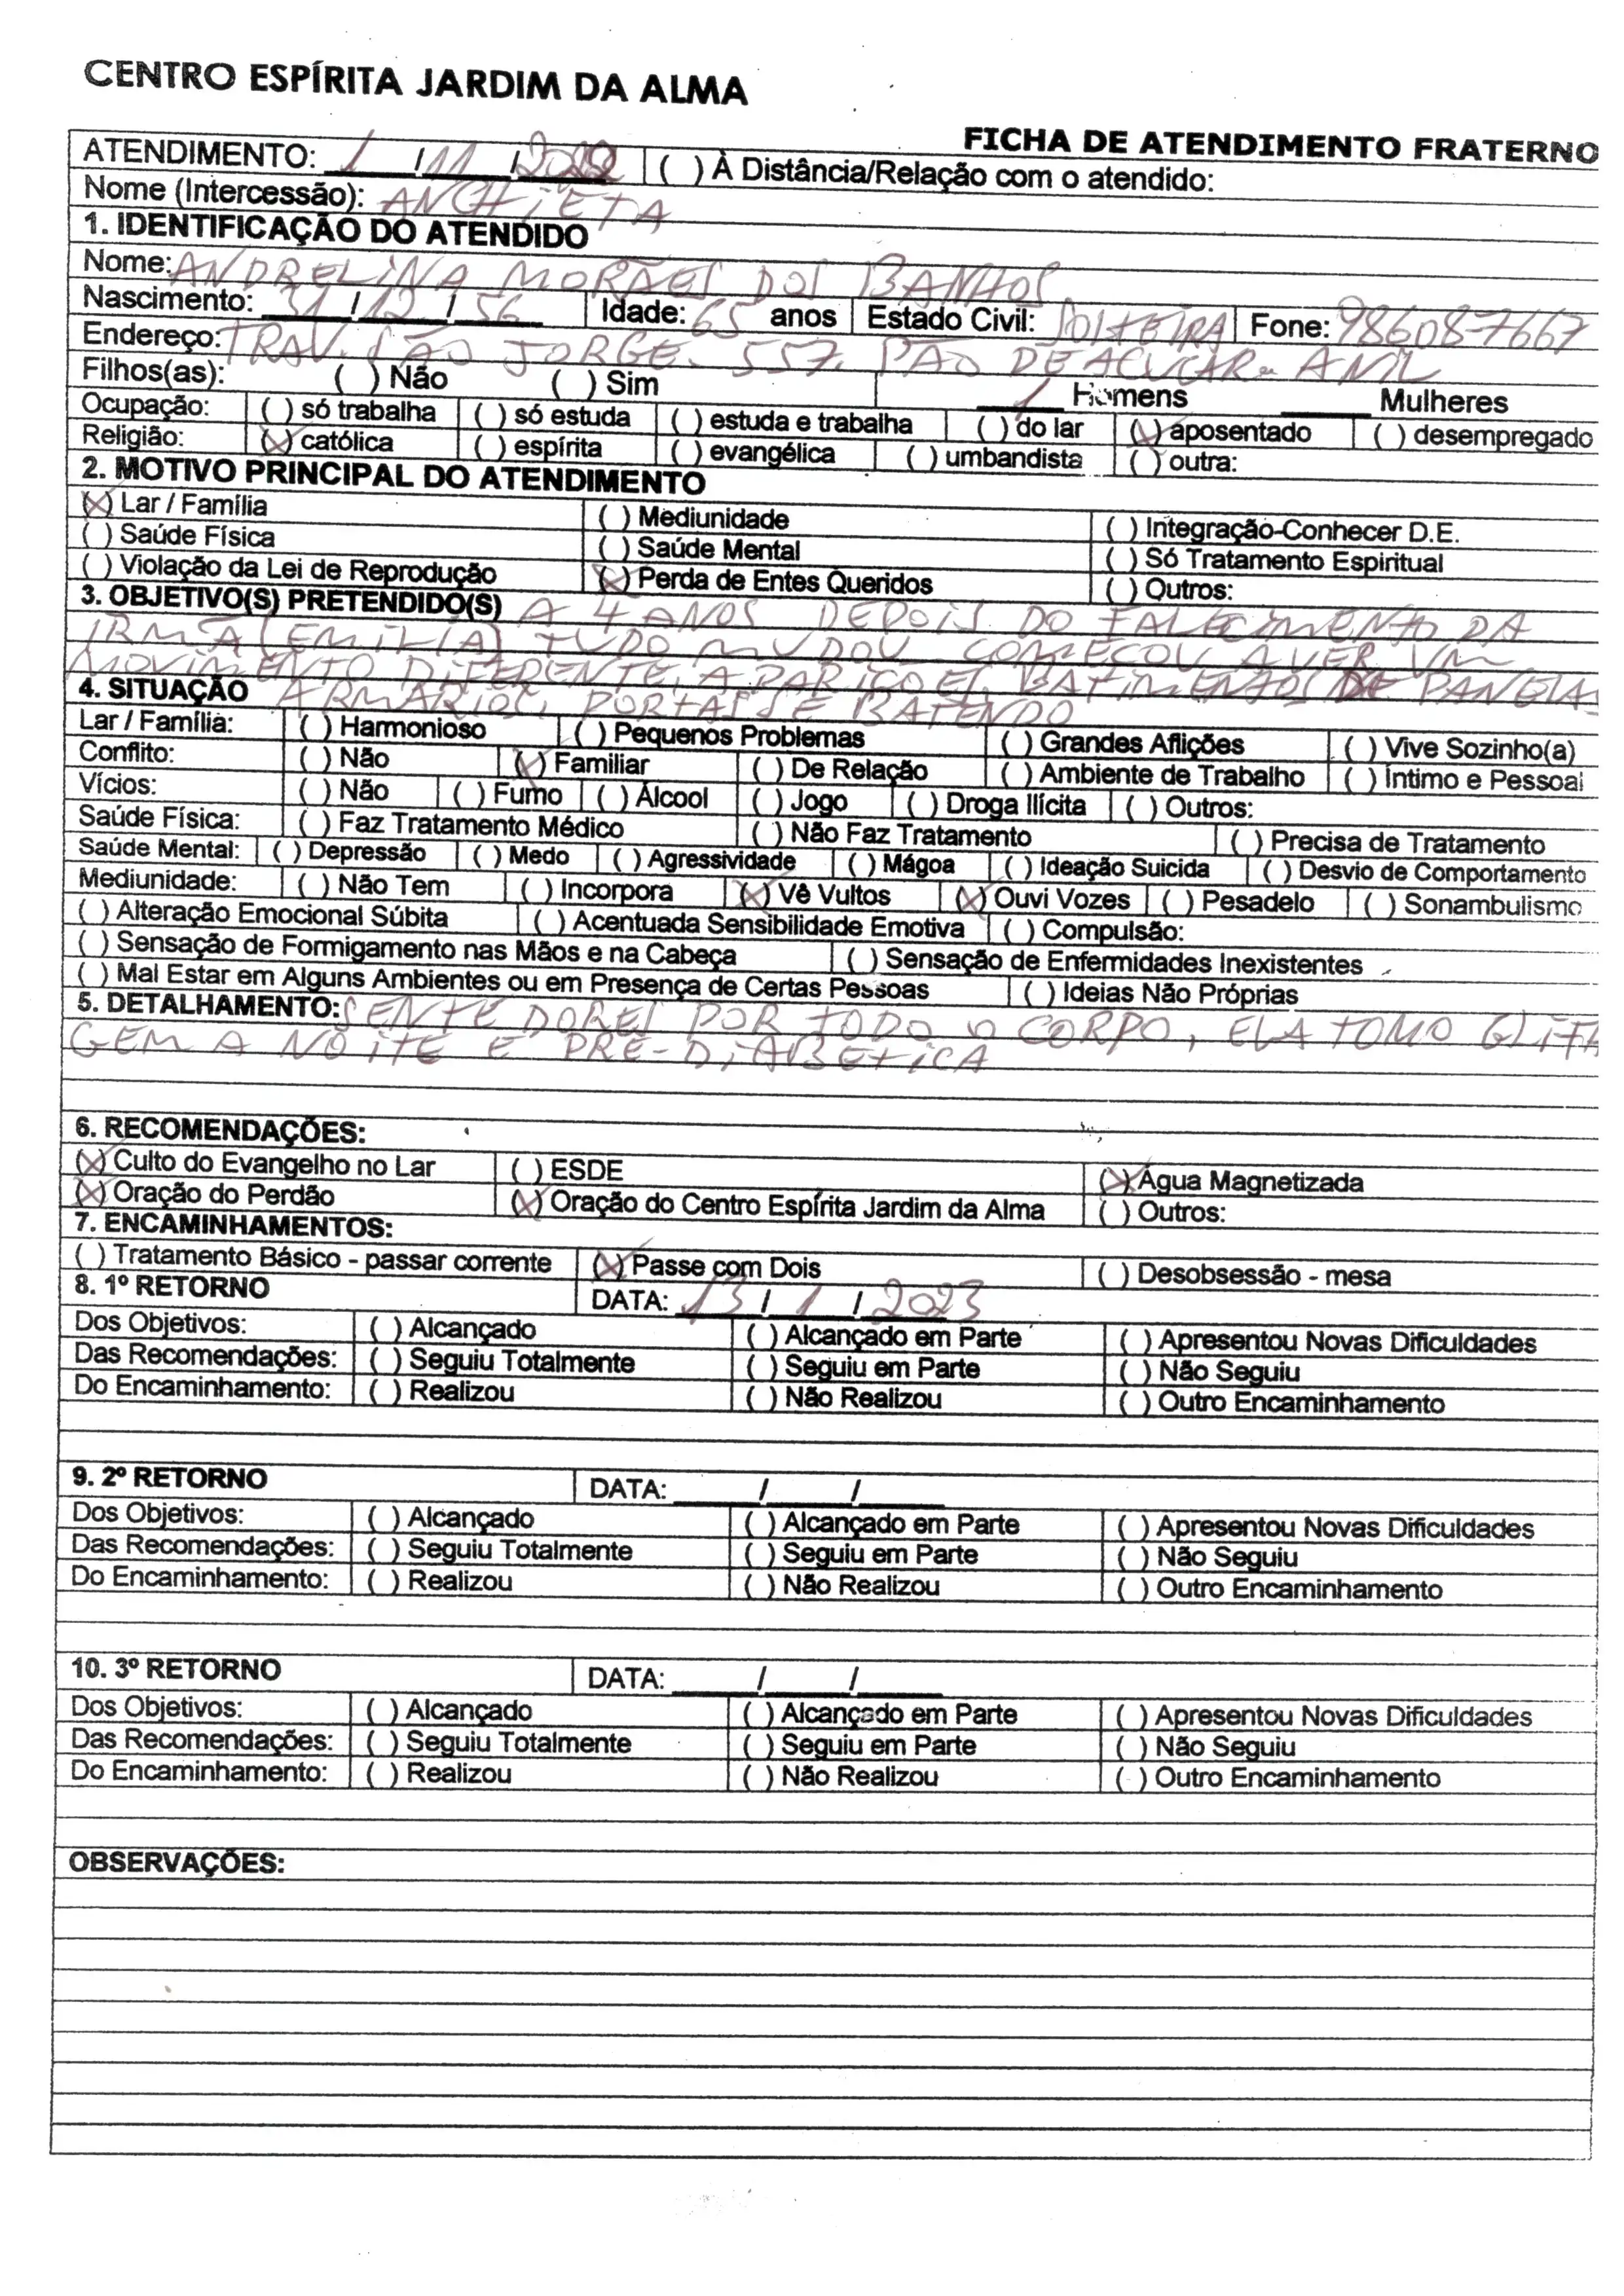 CENTRO ESPÍRITA JARDIM DA ALMA
FICHA DE ATENDIMENTO FRATERNO
ATENDIMENTO: 1 / 11 / ( ) À Distância/Relação com o atendido:
Nome (Intercessão): ANCHIETA
1. IDENTIFICAÇÃO DO ATENDIDO
Nome: ANDRELINA MORAES DOS BANHOS
Nascimento: 31 / 12 / 56 Idade: 65 anos Estado Civil: SOLTEIRA Fone: 986087667
Endereço: TRAV. SÃO JORGE. 557. PÃO DE AÇUCAR. ANIL
Filhos(as): ( ) Não ( ) Sim 1 Homens ____ Mulheres
Ocupação: ( ) só trabalha ( ) só estuda ( ) estuda e trabalha ( ) do lar (X) aposentado ( ) desempregado
Religião: (X) católica ( ) espírita ( ) evangélica ( ) umbandista ( ) outra:
2. MOTIVO PRINCIPAL DO ATENDIMENTO
(X) Lar / Família ( ) Mediunidade ( ) Integração-Conhecer D.E.
( ) Saúde Física ( ) Saúde Mental ( ) Só Tratamento Espiritual
( ) Violação da Lei de Reprodução (X) Perda de Entes Queridos ( ) Outros:
3. OBJETIVO(S) PRETENDIDO(S) A 4 ANOS DEPOIS DO FALECIMENTO DA
IRMÃ (EMILIA) TUDO MUDOU COMEÇOU A VER UM
MOVIMENTO DIFERENTE, APARIÇOES, BATIMENTOS DE PANELAS
4. SITUAÇÃO ARMARIOS, PORTAS SE BATENDO
Lar / Família: ( ) Harmonioso ( ) Pequenos Problemas ( ) Grandes Aflições ( ) Vive Sozinho(a)
Conflito: ( ) Não (X) Familiar ( ) De Relação ( ) Ambiente de Trabalho ( ) Íntimo e Pessoal
Vícios: ( ) Não ( ) Fumo ( ) Álcool ( ) Jogo ( ) Droga Ilícita ( ) Outros:
Saúde Física: ( ) Faz Tratamento Médico ( ) Não Faz Tratamento ( ) Precisa de Tratamento
Saúde Mental: ( ) Depressão ( ) Medo ( ) Agressividade ( ) Mágoa ( ) Ideação Suicida ( ) Desvio de Comportamento
Mediunidade: ( ) Não Tem ( ) Incorpora (X) Vê Vultos (X) Ouvi Vozes ( ) Pesadelo ( ) Sonambulismo
( ) Alteração Emocional Súbita ( ) Acentuada Sensibilidade Emotiva ( ) Compulsão:
( ) Sensação de Formigamento nas Mãos e na Cabeça ( ) Sensação de Enfermidades Inexistentes
( ) Mal Estar em Alguns Ambientes ou em Presença de Certas Pessoas ( ) Ideias Não Próprias
5. DETALHAMENTO: SENTE DORES POR TODO O CORPO, ELA TOMO GLIFA
GEM A NOITE E PRE-DIABETICA
6. RECOMENDAÇÕES:
(X) Culto do Evangelho no Lar ( ) ESDE (X) Água Magnetizada
(X) Oração do Perdão (X) Oração do Centro Espírita Jardim da Alma ( ) Outros:
7. ENCAMINHAMENTOS:
( ) Tratamento Básico - passar corrente (X) Passe com Dois ( ) Desobsessão - mesa
8. 1º RETORNO DATA: 13 / 1 / 2023
Dos Objetivos: ( ) Alcançado ( ) Alcançado em Parte ( ) Apresentou Novas Dificuldades
Das Recomendações: ( ) Seguiu Totalmente ( ) Seguiu em Parte ( ) Não Seguiu
Do Encaminhamento: ( ) Realizou ( ) Não Realizou ( ) Outro Encaminhamento
9. 2º RETORNO DATA: ____/____/____
Dos Objetivos: ( ) Alcançado ( ) Alcançado em Parte ( ) Apresentou Novas Dificuldades
Das Recomendações: ( ) Seguiu Totalmente ( ) Seguiu em Parte ( ) Não Seguiu
Do Encaminhamento: ( ) Realizou ( ) Não Realizou ( ) Outro Encaminhamento
10. 3º RETORNO DATA: ____/____/____
Dos Objetivos: ( ) Alcançado ( ) Alcançado em Parte ( ) Apresentou Novas Dificuldades
Das Recomendações: ( ) Seguiu Totalmente ( ) Seguiu em Parte ( ) Não Seguiu
Do Encaminhamento: ( ) Realizou ( ) Não Realizou ( ) Outro Encaminhamento
OBSERVAÇÕES: